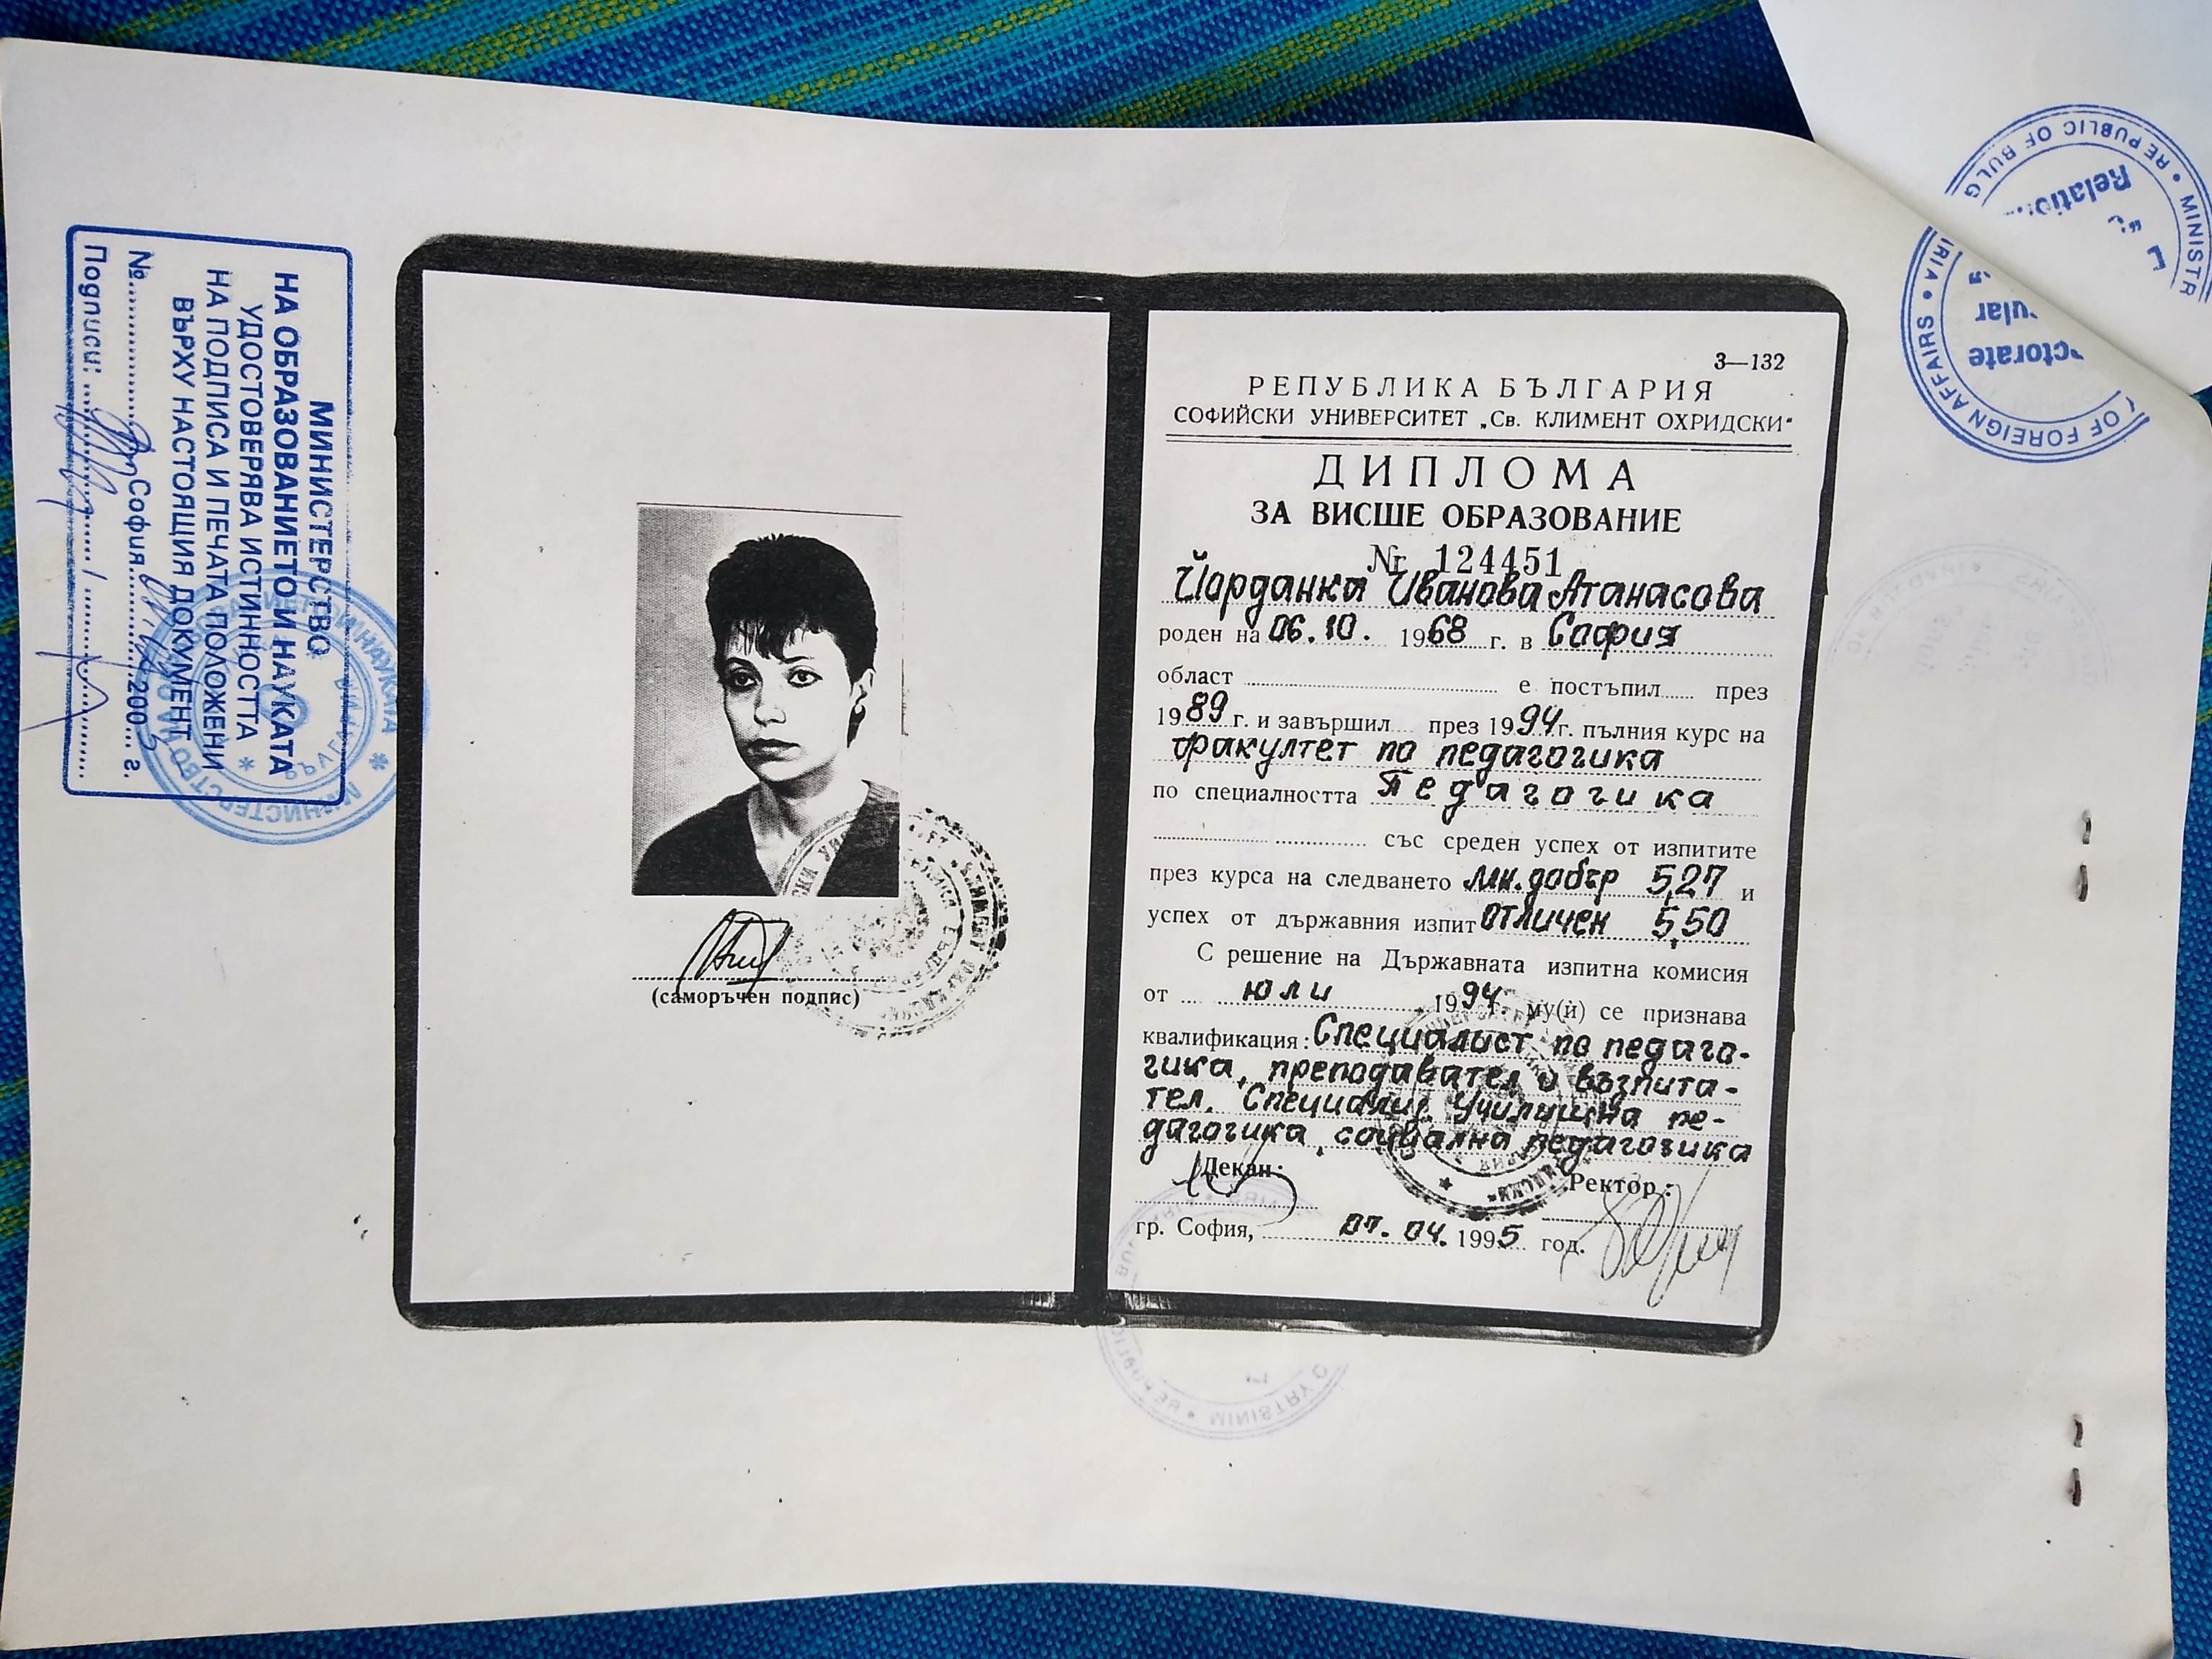 МИНИСТЕРСТВО
НА ОБРАЗОВАНИЕТО И НАУКАТА
УДОСТОВЕРЯВА ИСТИННОСТТА
НА ПОДПИСА И ПЕЧАТА ПОЛОЖЕНИ
ВЪРХУ НАСТОЯЩИЯ ДОКУМЕНТ
№ София 200 г.
Подписи: /
МИНИСТЕРСТВО НА ОБРАЗОВАНИЕТО И НАУКАТА
(саморъчен подпис)
3—132
РЕПУБЛИКА БЪЛГАРИЯ
СОФИЙСКИ УНИВЕРСИТЕТ „Св. КЛИМЕНТ ОХРИДСКИ"
ДИПЛОМА
ЗА ВИСШЕ ОБРАЗОВАНИЕ
№ 124451
Йорданка Иванова Атанасова
роден на 06.10. 1968 г. в София
област е постъпил през
1989 г. и завършил през 1994 г. пълния курс на
факултет по педагогика
по специалността Педагогика
със среден успех от изпитите
през курса на следването мн. добър 5,27 и
успех от държавния изпит отличен 5,50
С решение на Държавната изпитна комисия
от юли 1994 г. му(ѝ) се признава
квалификация: Специалист по педаго-
гика, преподавател и възпита-
тел. Специализ. Училищна пе-
дагогика, социална педагогика
Декан: Ректор:
гр. София, 07.04.1995 год.
REPUBLIC OF BULG
MINISTR
Relation
OF FOREIGN AFFAIRS
RIA
ctorate
ular